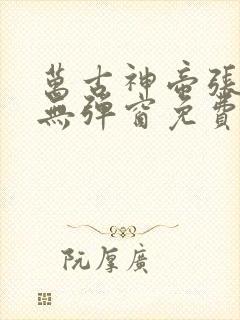 萬古神帝張
無彈窗免費
阮厚廣